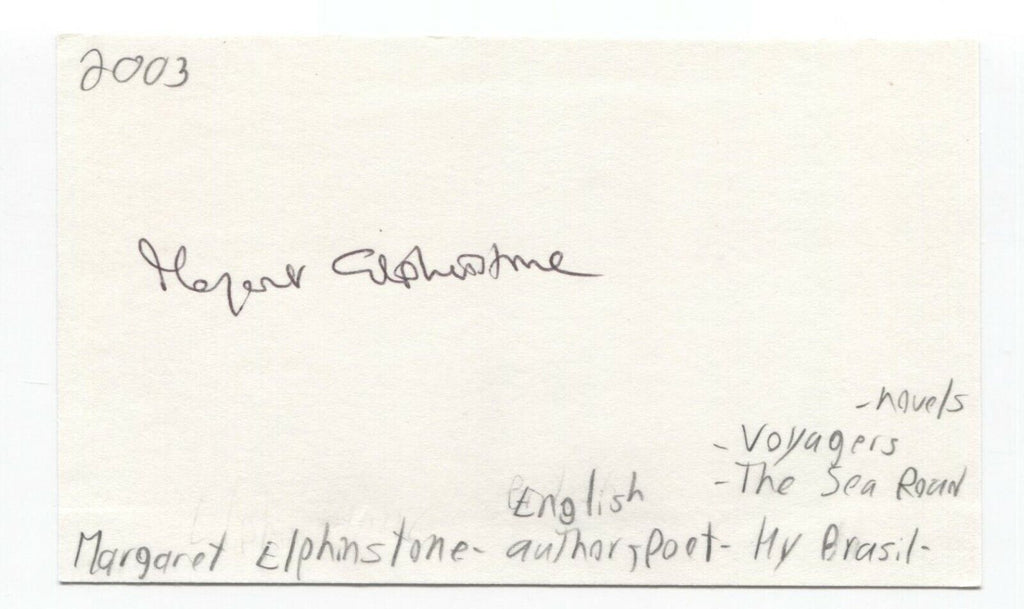 2003
Margaret Elphinstone
-novels
- Voyagers
-The Sea Road
English
Margaret Elphinstone- author, poet- Hy Brasil-